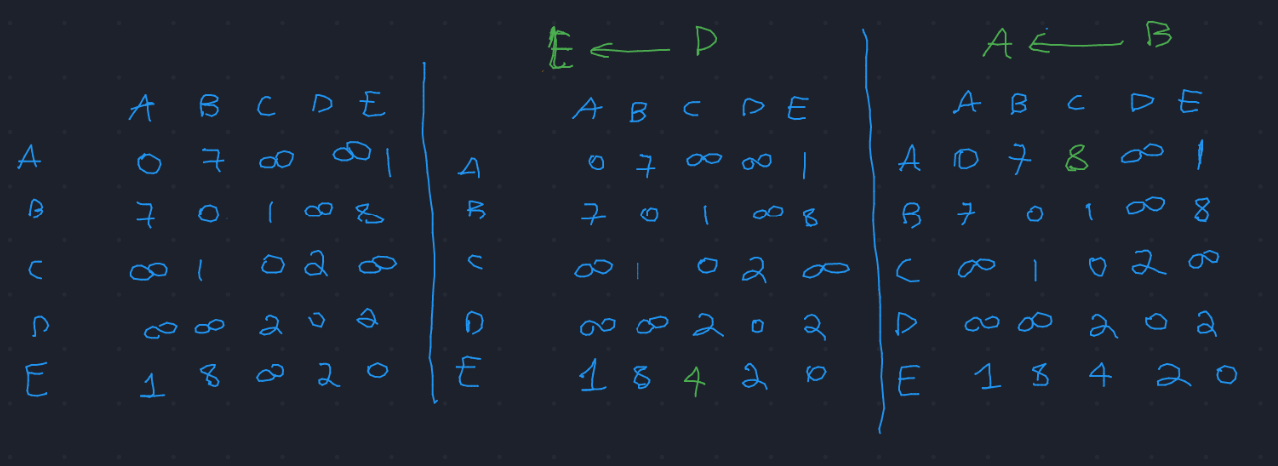 E ← D
A ← B
A B C D E
A 0 7 ∞ ∞ 1
B 7 0 1 ∞ 8
C ∞ 1 0 2 ∞
D ∞ ∞ 2 0 2
E 1 8 ∞ 2 0
A B C D E
A 0 7 ∞ ∞ 1
B 7 0 1 ∞ 8
C ∞ 1 0 2 ∞
D ∞ ∞ 2 0 2
E 1 8 4 2 0
A B C D E
A 0 7 8 ∞ 1
B 7 0 1 ∞ 8
C ∞ 1 0 2 ∞
D ∞ ∞ 2 0 2
E 1 8 4 2 0